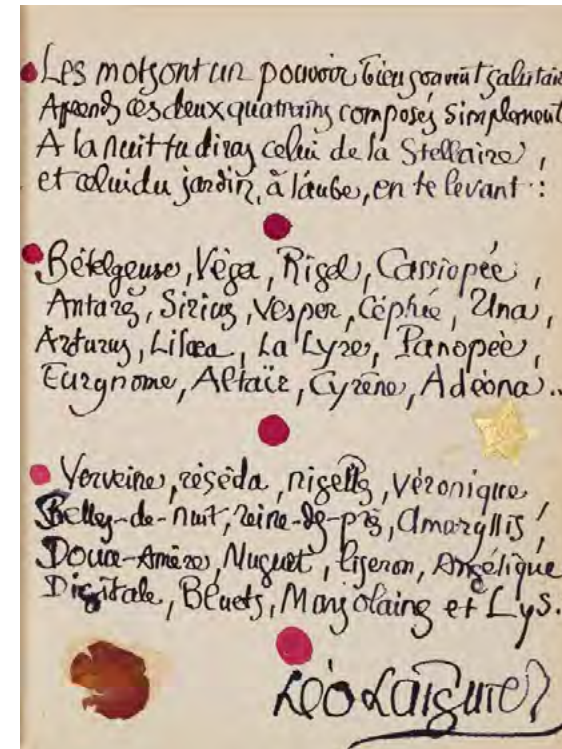 Les mots ont un pouvoir bien souvent salutaire
Aprends ces deux quatrains composés simplement
A la nuit tu diras celui de la Stellaire,
et celui du jardin, à l'aube, en te levant :
Bételgeuse, Véga, Rigel, Cassiopée,
Antarès, Sirius, Vesper, Céphée, Una,
Arturus, Lilæa, La Lyre, Panopée,
Eurynome, Altaïr, Cyrène, Adéona..
Verveine, réséda, nigelle, véronique,
Belles-de-nuit, reine-des-prés, Amaryllis,
Douce-Amère, Muguet, liseron, Angélique
Digitale, Bluets, Marjolaine et Lys.
Léo Larguier